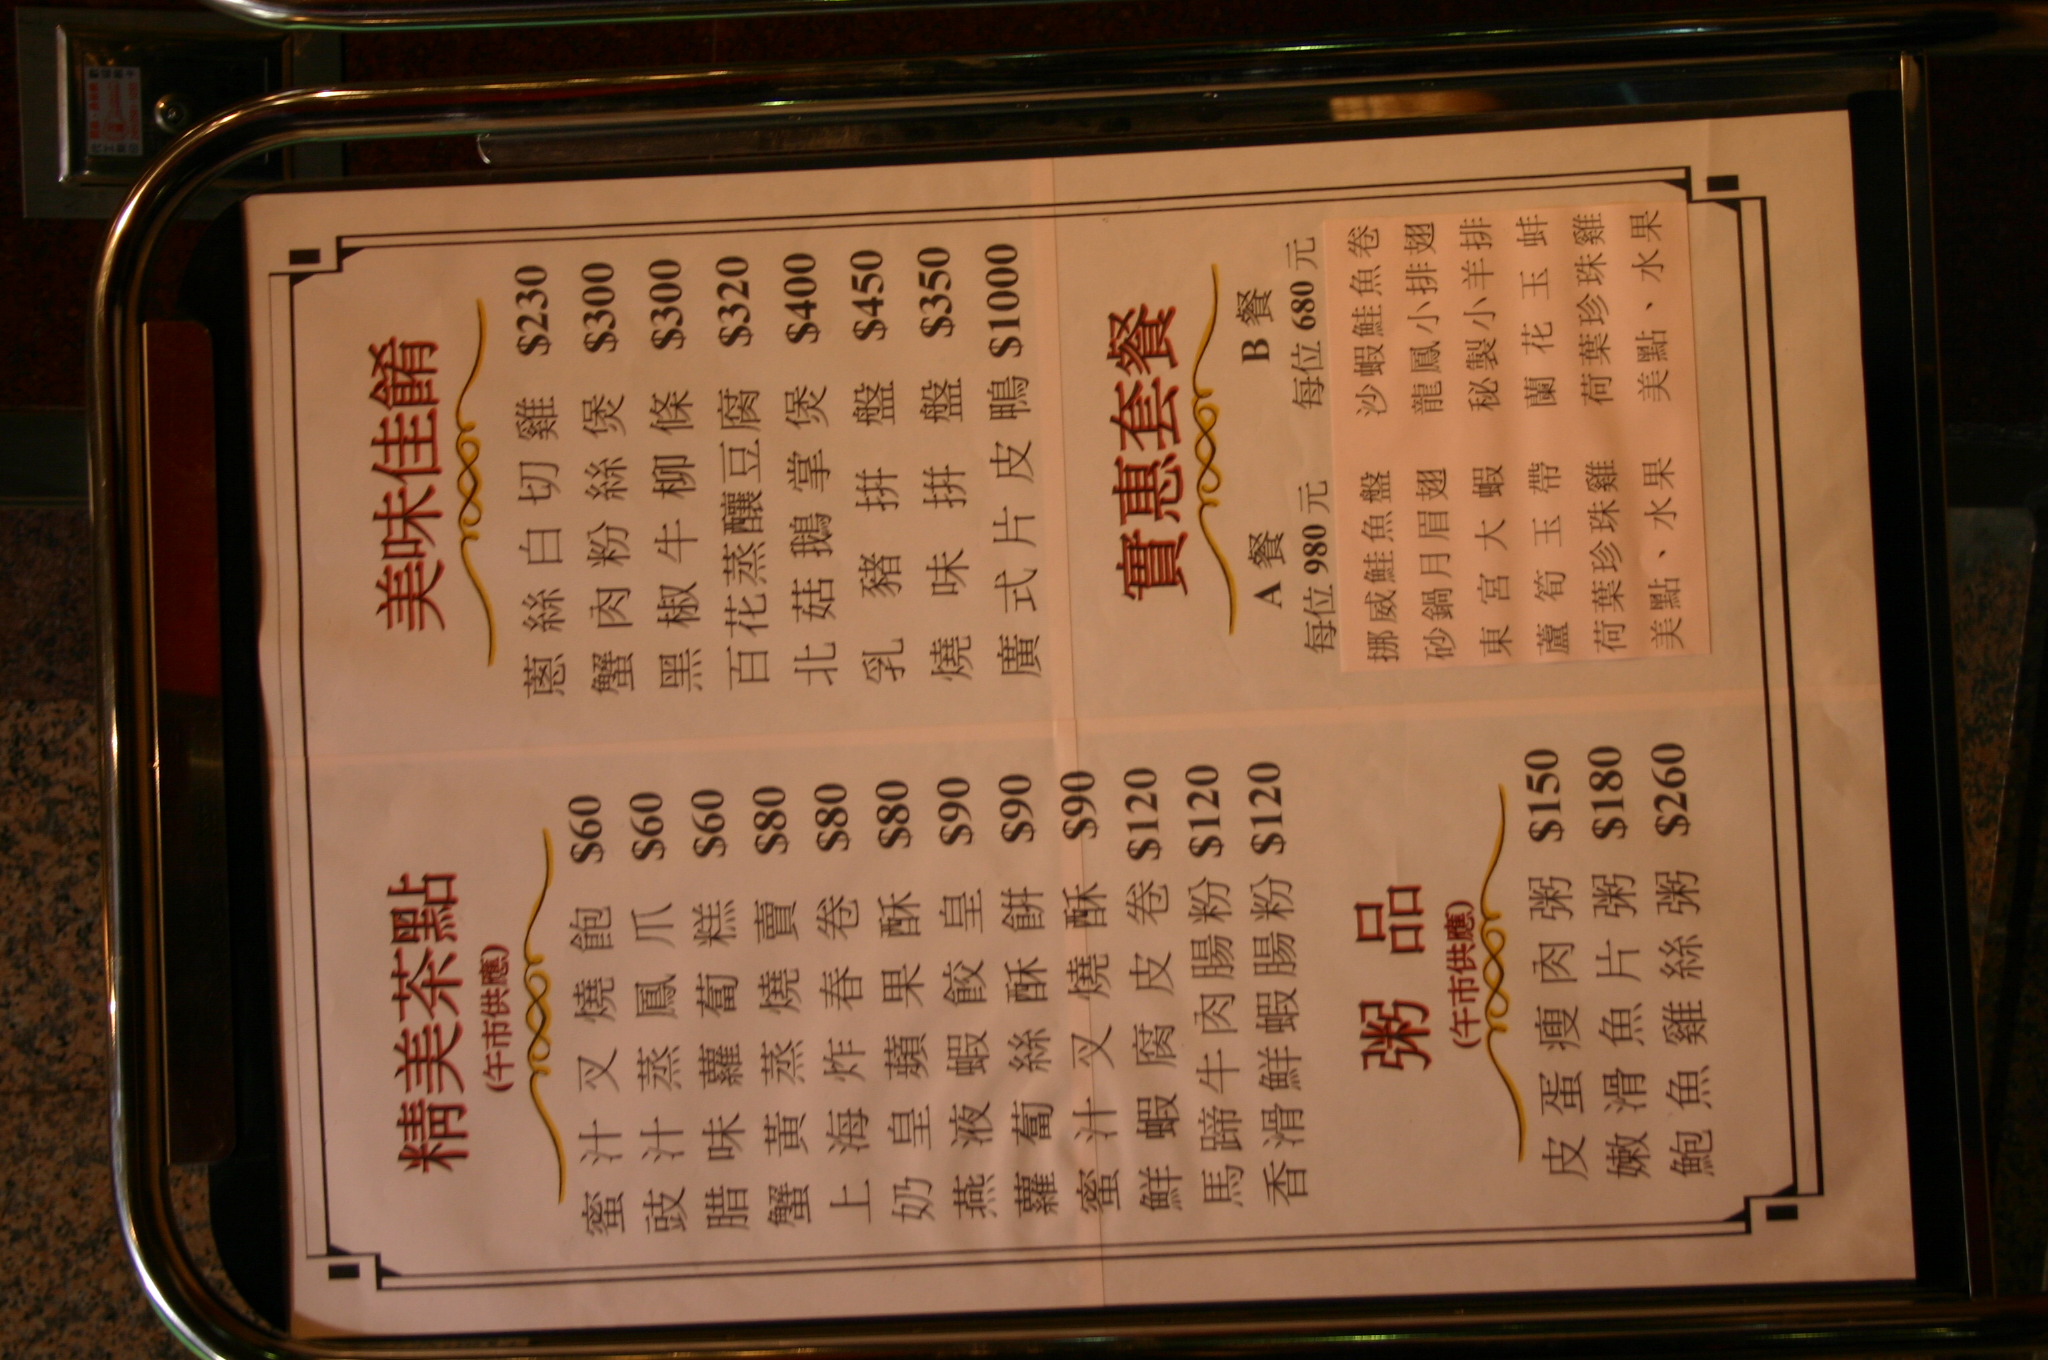 精美茶點
(午市供應)
蜜汁叉燒飽 $60
豉汁蒸鳳爪 $60
腊味蘿蔔糕 $60
蟹黃蒸燒賣 $80
上海炸春卷 $80
奶皇蘋果酥 $80
燕液蝦餃皇 $90
蘿蔔絲酥餅 $90
蜜汁叉燒酥 $90
鮮蝦腐皮卷 $120
馬蹄牛肉腸粉 $120
香滑鮮蝦腸粉 $120
粥品
(午市供應)
皮蛋瘦肉粥 $150
嫩滑魚片粥 $180
鮑魚雞絲粥 $260
美味佳餚
蔥絲白切雞 $230
蟹肉粉絲煲 $300
黑椒牛柳條 $300
百花蒸釀豆腐 $320
北菇鵝掌煲 $400
乳豬拼盤 $450
燒味拼盤 $350
廣式片皮鴨 $1000
實惠套餐
A餐 B餐
每位980元 每位680元
挪威鮭魚盤 沙蝦鮭魚卷
砂鍋月眉翅 龍鳳小排翅
東宮大蝦 秘製小羊排
蘆筍玉帶 蘭花玉蚌
荷葉珍珠雞 荷葉珍珠雞
美點、水果 美點、水果